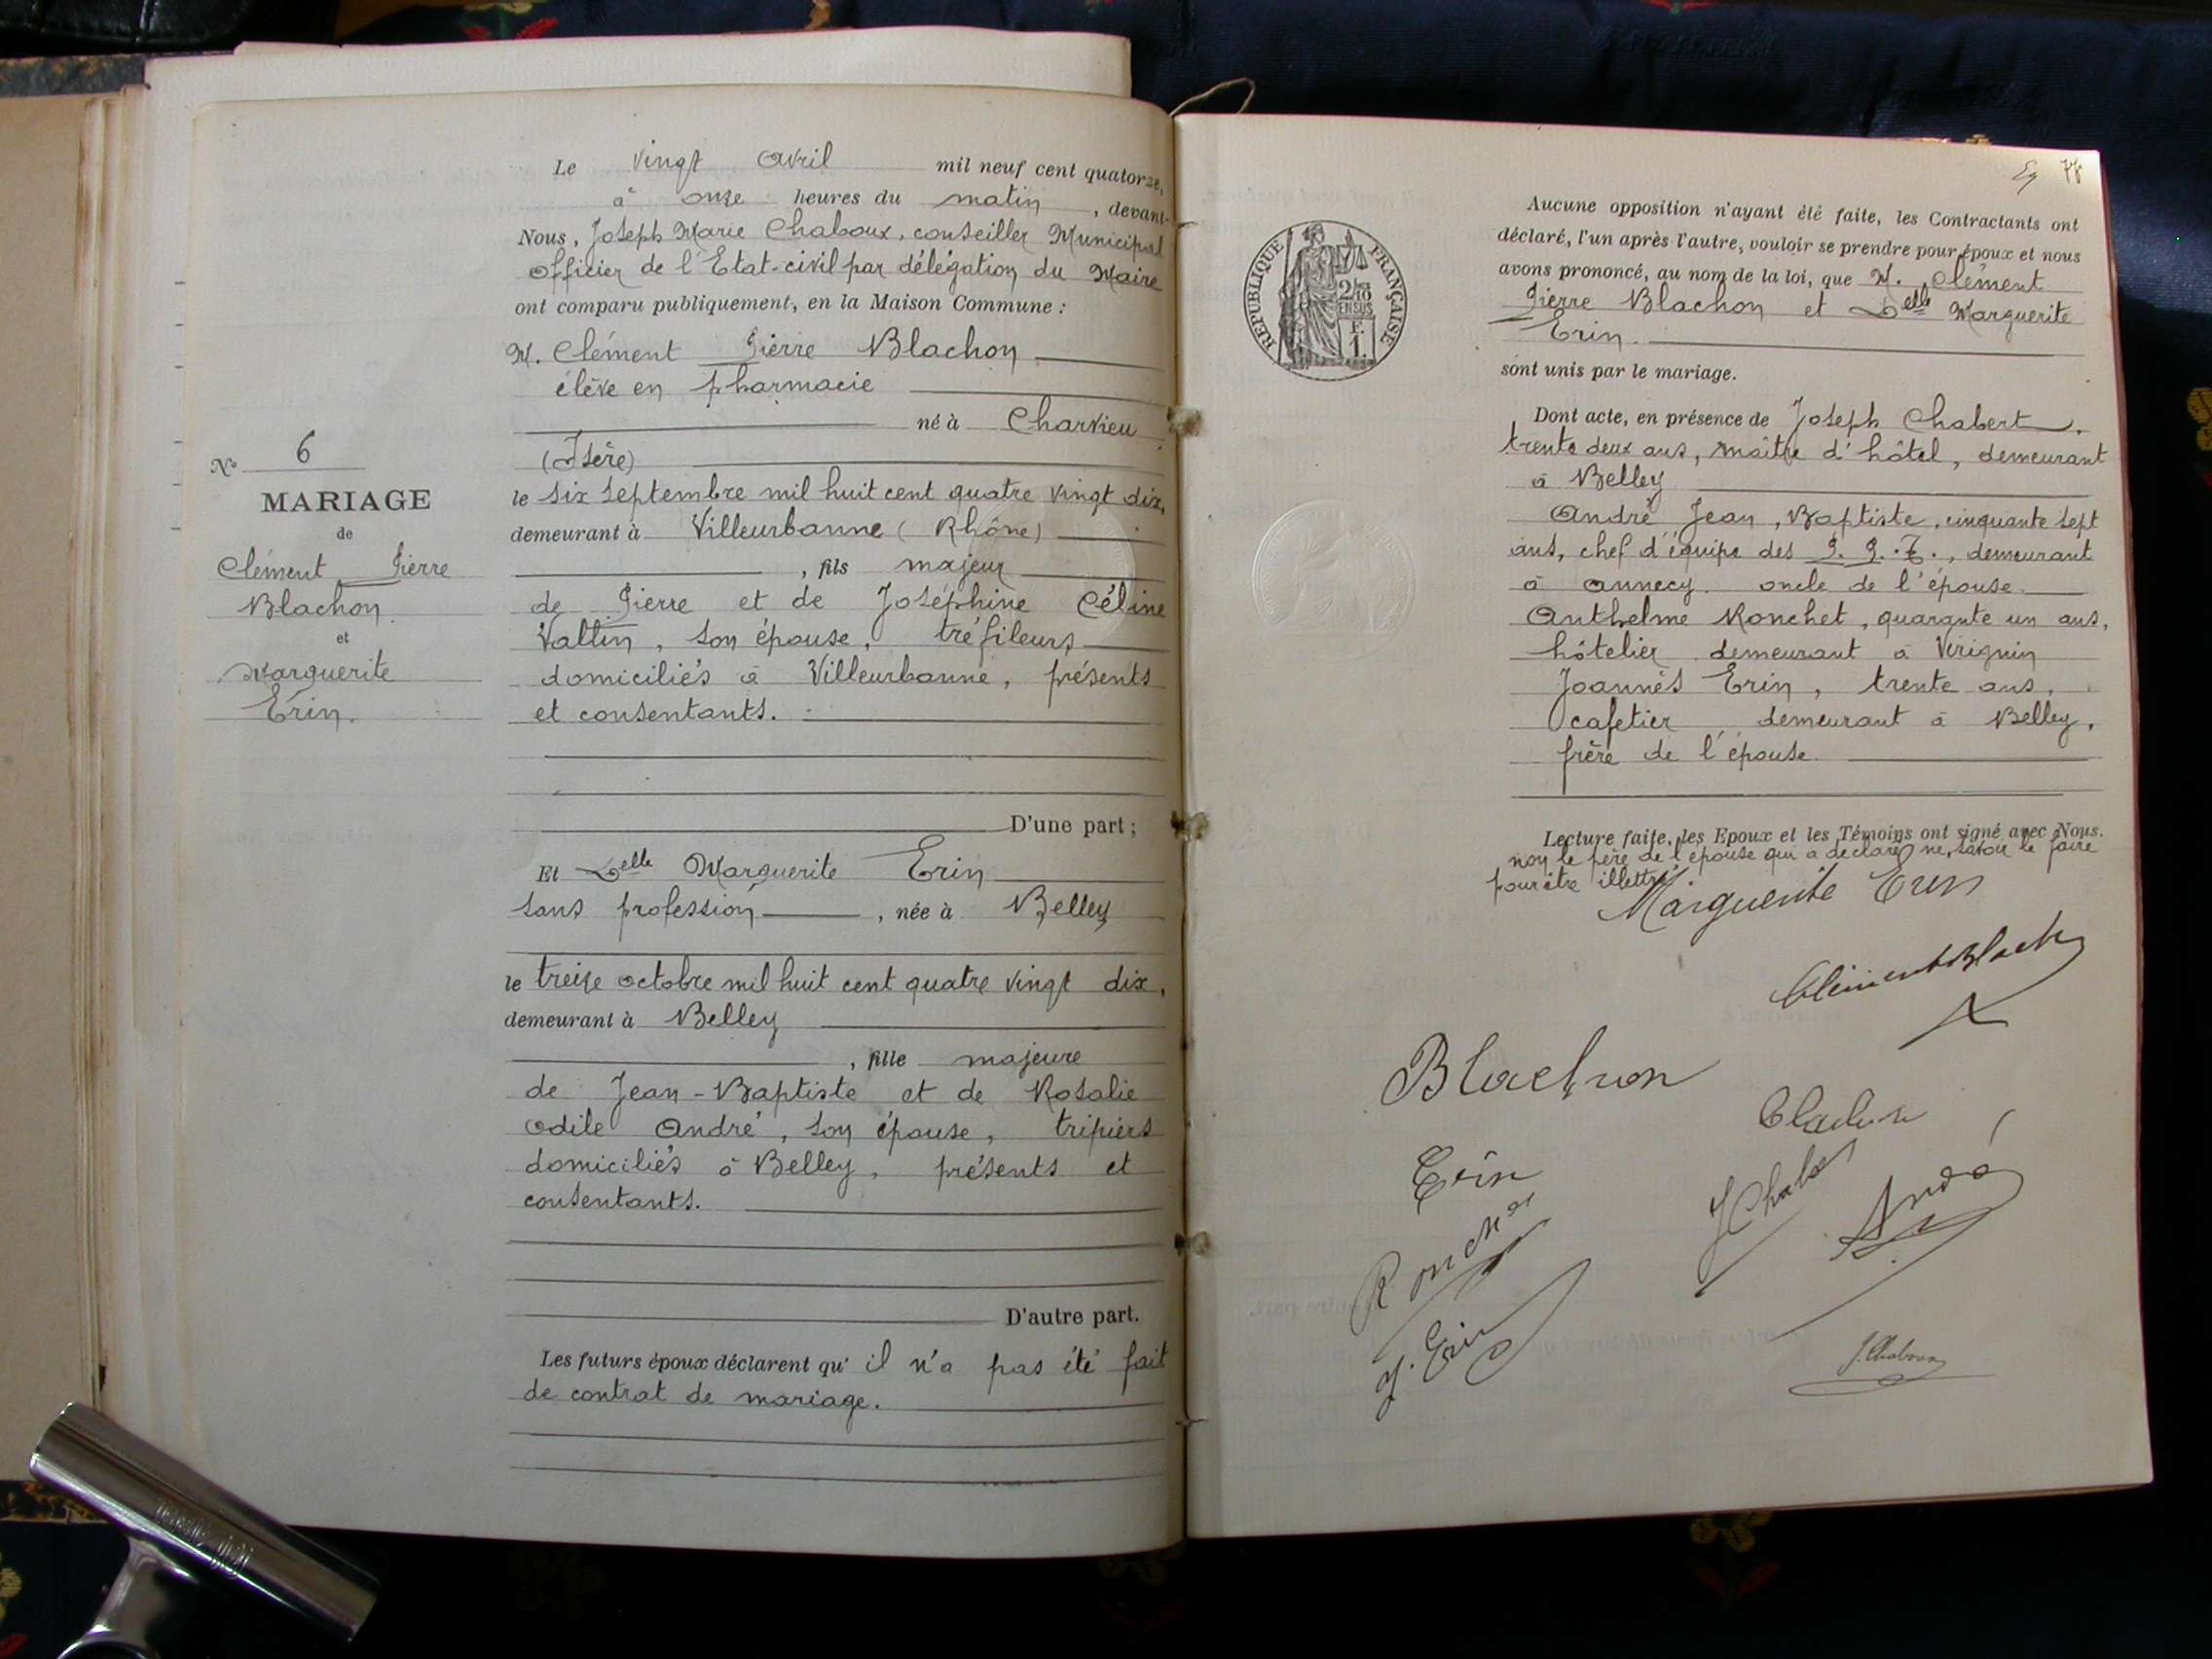 Le vingt avril mil neuf cent quatorze,
à onze heures du matin, devant
Nous, Joseph Marie Chaboux, conseiller Municipal
officier de l'Etat-civil par délégation du Maire
ont comparu publiquement, en la Maison Commune :
M. Clément Pierre Blachon
élève en pharmacie
né à Charvieu
(Isère)
le six septembre mil huit cent quatre vingt dix,
demeurant à Villeurbanne (Rhône)
, fils majeur
de Pierre et de Joséphine Céline
Vallin, son épouse, tréfileurs
domiciliés à Villeurbanne, présents
et consentants.
D'une part ;
Et Delle Marguerite Erin
sans profession, née à Belley
le treize octobre mil huit cent quatre vingt dix,
demeurant à Belley
, fille majeure
de Jean-Baptiste et de Rosalie
Odile André, son épouse, tripiers
domiciliés à Belley, présents et
consentants.
D'autre part.
Les futurs époux déclarent qu'il n'a pas été fait
de contrat de mariage.
N° 6
MARIAGE
de
Clément Pierre
Blachon.
et
Marguerite
Erin.
REPUBLIQUE FRANÇAISE
2/10
EN SUS
F.
1.
Aucune opposition n'ayant été faite, les Contractants ont
déclaré, l'un après l'autre, vouloir se prendre pour époux et nous
avons prononcé, au nom de la loi, que M. Clément
Pierre Blachon et Delle Marguerite
Erin.
sont unis par le mariage.
Dont acte, en présence de Joseph Chabert,
trente deux ans, maître d'hôtel, demeurant
à Belley
André Jean, Baptiste, cinquante sept
ans, chef d'équipe des P. P. T., demeurant
à Annecy oncle de l'épouse
Anthelme Ronchet, quarante un ans,
hôtelier demeurant à Virignin
Joannès Erin, trente ans,
cafetier demeurant à Belley,
frère de l'épouse
Lecture faite, les Epoux et les Témoins ont signé avec Nous.
non le père de l'épouse qui a déclaré ne savoir le faire
pour être illettré
Marguerite Erin
Clément Blachon
Blachon
Erin
Ronchet
J. Erin
J Chabert
André
J. Chaboux